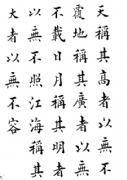 天稱其高者以無不
覆地稱其廣者以無
不載日月稱其明者
以無不照江海稱其
大者以無不容